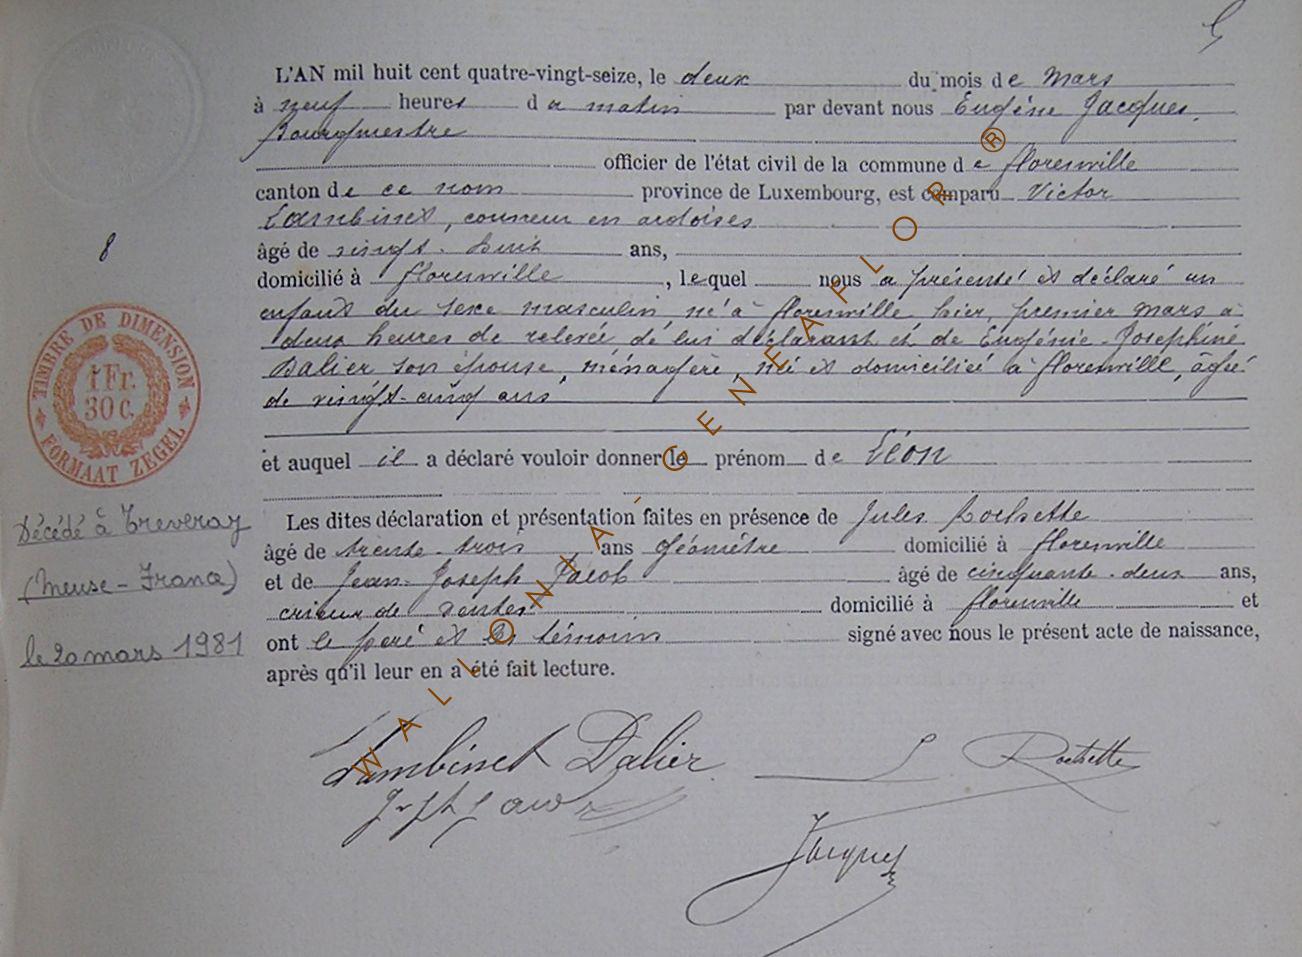 5
L'AN mil huit cent quatre-vingt-seize, le deux du mois de Mars
à neuf heures du matin par devant nous Eugène Jacques,
Bourgmestre
officier de l'état civil de la commune de Florenville
canton de ce nom province de Luxembourg, est comparu Victor
Lambinet, couvreur en ardoises
8
âgé de vingt-huit ans,
domicilié à Florenville, lequel nous a présenté et déclaré un
enfant du sexe masculin né à Florenville hier, premier mars à
deux heures de relevée de lui déclarant et de Eugénie-Joséphine
Dalier son épouse, ménagère, née et domiciliée à Florenville, âgée
de vingt-cinq ans
TIMBRE DE DIMENSION
1 Fr.
30 C.
FORMAAT ZEGEL
et auquel il a déclaré vouloir donner le prénom de Léon
Les dites déclaration et présentation faites en présence de Jules Rochette
Décédé à Treveray
âgé de trente-trois ans géomètre domicilié à Florenville
(Meuse - France)
et de Jean-Joseph Jacob âgé de cinquante-deux ans,
crieur de ventes domicilié à Florenville et
le 20 mars 1981
ont le père et les témoins signé avec nous le présent acte de naissance,
après qu'il leur en a été fait lecture.
Lambinet Dalier
Rochette
Jacques
WALLONIA-GENEAFLOR®